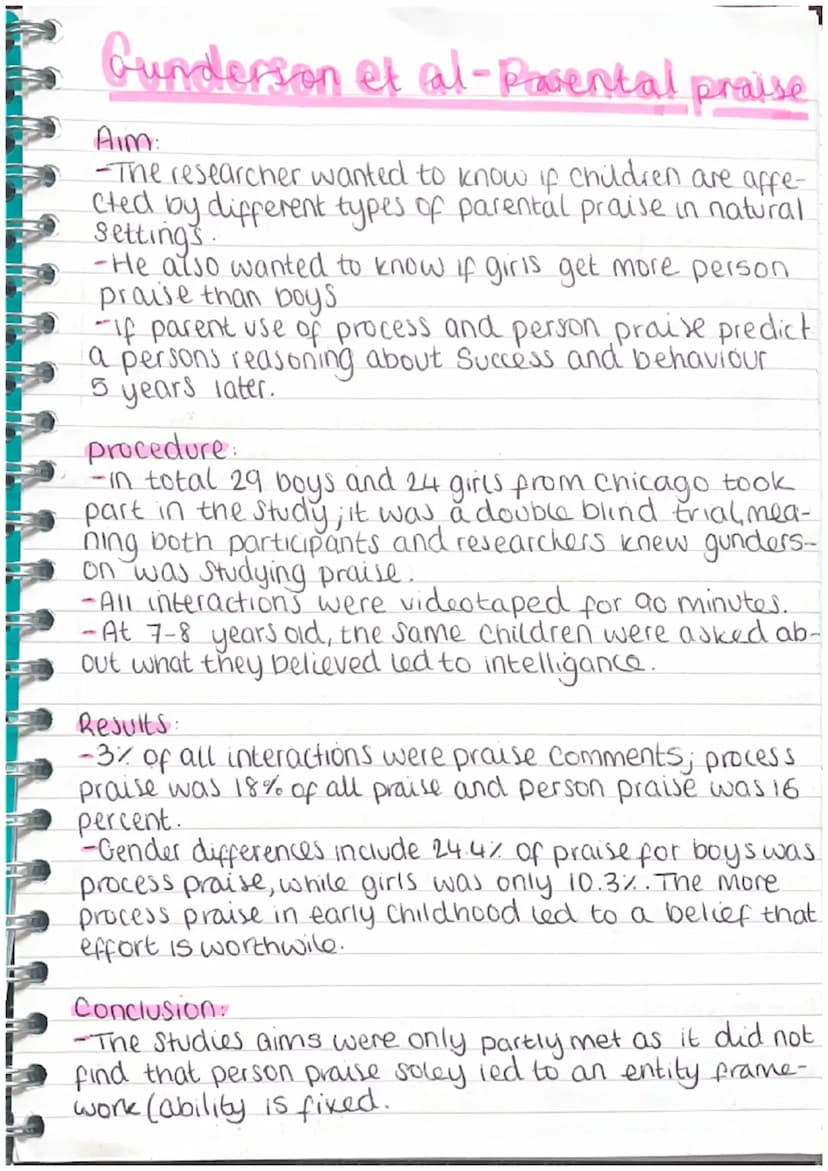 Gunderson et al - Parental praise
Aim:
-The researcher wanted to know if children are affe-
cted by different types of parental praise in natural
settings.
-He also wanted to know if girls get more person
praise than boys
-if parent use of process and person praise predict
a persons reasoning about success and behaviour
5 years later.
procedure:
-in total 29 boys and 24 girls from chicago took
part in the study; it was a double blind trial, mea-
ning both participants and researchers knew gunders-
on was studying praise.
-All interactions were videotaped for 90 minutes.
-At 7-8 years old, the same children were asked ab-
out what they believed led to intelligance.
Results:
-3% of all interactions were praise comments; process
praise was 18% of all praise and person praise was 16
percent.
-Gender differences include 24.4% of praise for boys was
process praise, while girls was only 10.3%. The more
process praise in early childhood led to a belief that
effort is worthwile.
Conclusion:
-The studies aims were only partly met as it did not
find that person praise soley led to an entity frame-
work (ability is fixed.